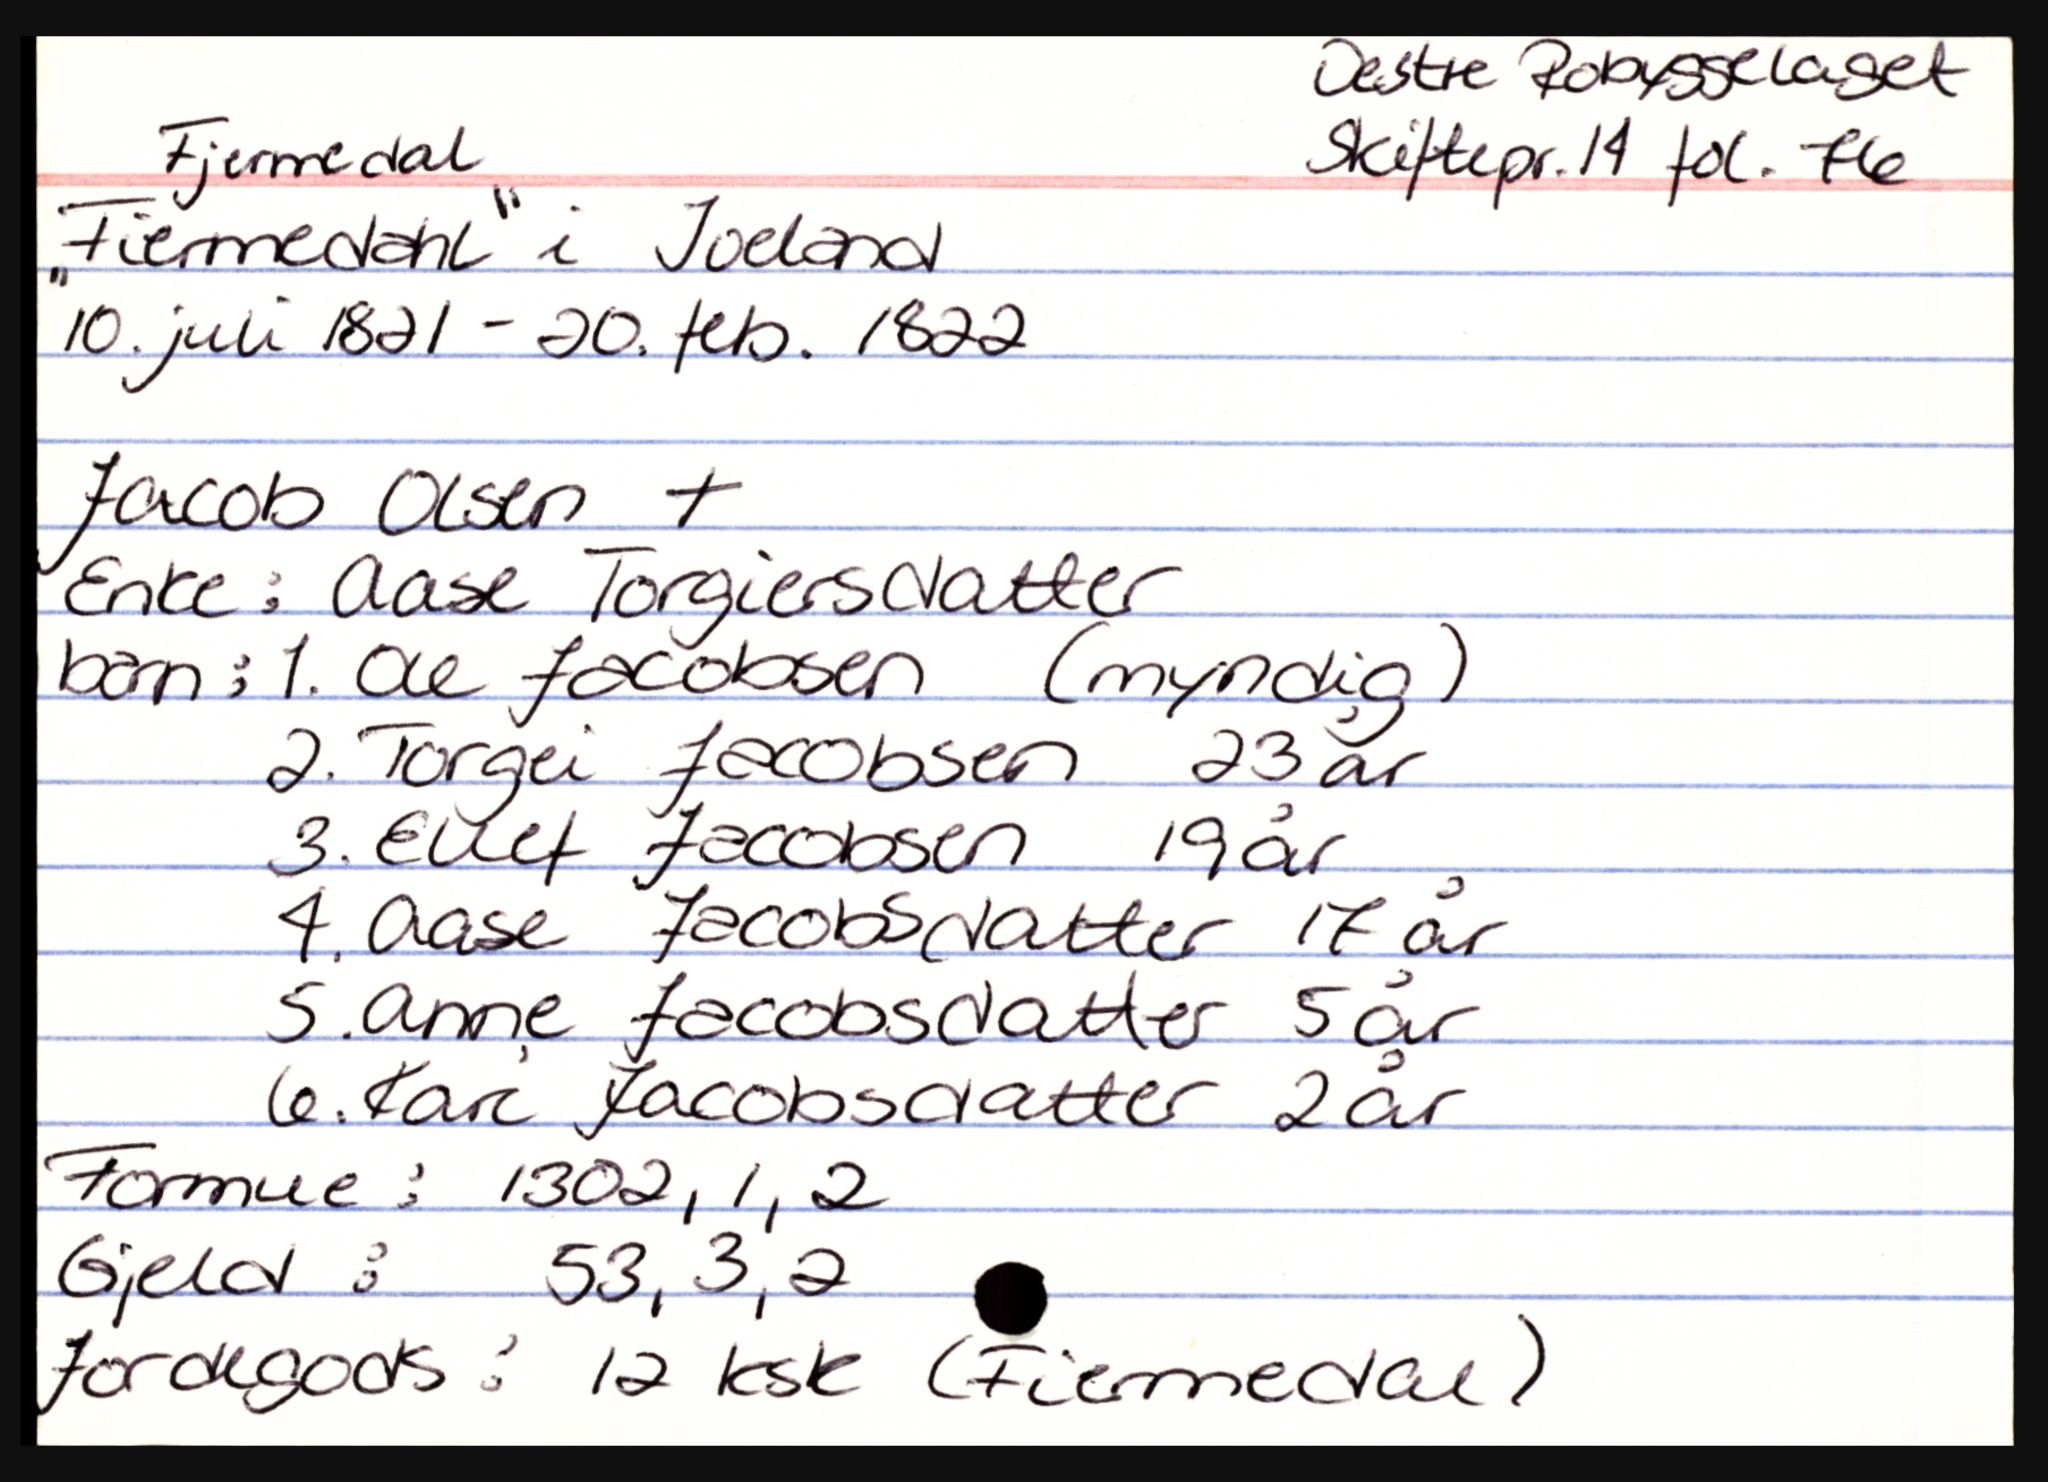 Vestre Robyggelaget
Fjermedal
Skiftepr. 14 fol. 76
"Fiermedahl" i Ioeland
10. juli 1821 - 20. feb. 1822
Jacob Olsen +
Enke: Aase Torgiersdatter
barn: 1. Ole Jacobsen (myndig)
2. Torgei Jacobsen 23 år
3. Ellef Jacobsen 19 år
4. Aase Jacobsdatter 17 år
5. Anne Jacobsdatter 5 år
6. Kari Jacobsdatter 2 år
Formue: 1302, 1, 2
Gjeld: 53, 3, 2
Jordegods: 12 ksk (Fiermedal)